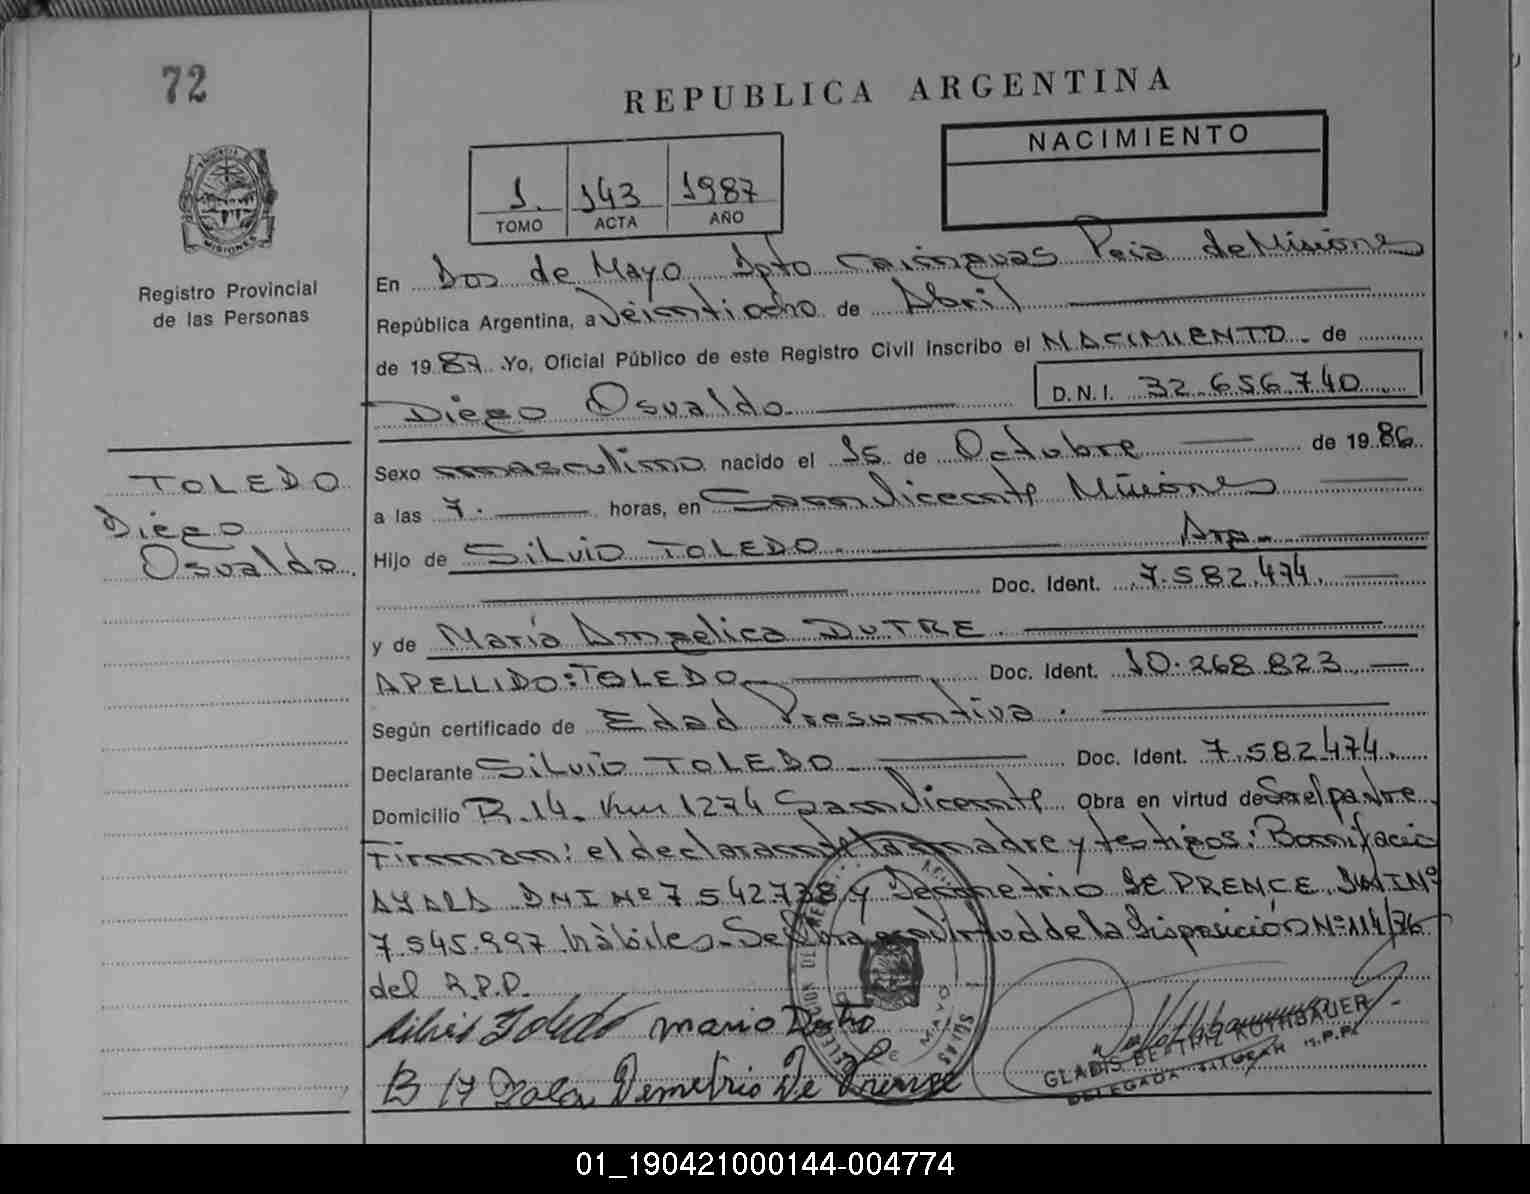 72
REPUBLICA ARGENTINA
NACIMIENTO
1. 143 1987
TOMO ACTA AÑO
MISIONES
Registro Provincial
de las Personas
En Dos de Mayo Dpto Cainguas Pcia de Misiones
República Argentina, a Veintiocho de Abril
de 1987. Yo, Oficial Público de este Registro Civil Inscribo el NACIMIENTO de
Diego Osvaldo D.N.I. 32.656.740
TOLEDO
Diego
Osvaldo.
Sexo masculino nacido el 15 de Octubre de 1986
a las 7. horas, en San Vicente Misiones
Arg.
Hijo de Silvio TOLEDO.
Doc. Ident. 7.582.474.
y de María Angelica DUTRE.
APELLIDO: TOLEDO Doc. Ident. 10.268.823
Según certificado de Edad Presuntiva.
Declarante Silvio TOLEDO Doc. Ident. 7.582.474.
Domicilio R.14. Km 1274 San Vicente Obra en virtud de Ser el padre.
Firman: el declarante la madre y testigos: Bonifacio
AYALA DNI Nº 7.542.738 y Demetrio DE PRENCE DNI Nº
7.545.997 hàbiles. Se obra en virtud de la Disposición Nº 114/76
del R.P.P.
Silvio Toledo Mario
B Demetrio De
DOS DE MAYO
GLADIS BEATRIZ ROTHBAUER
DELEGADA TITULAR R.P.P.
01_190421000144-004774